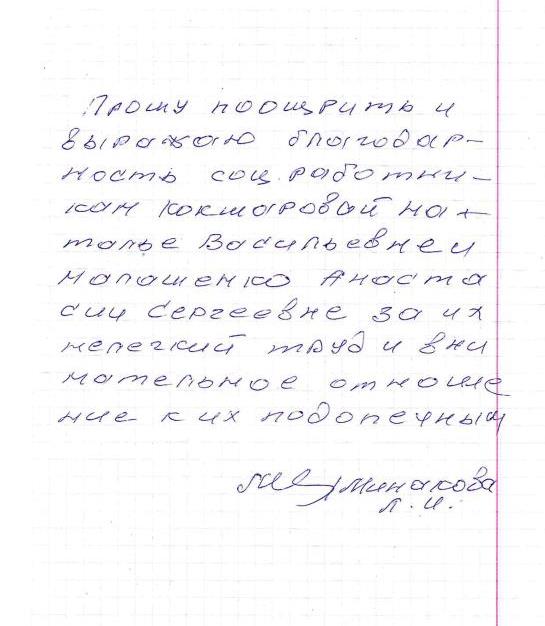 Прошу поощрить и
выражаю благодар-
ность соц. работни-
кам Кокшаровой На-
талье Васильевне и
Малашенко Анаста
сии Сергеевне за их
нелегкий труд и вни
мательное отноше
ние к их подопечным
Минакова
Л. И.